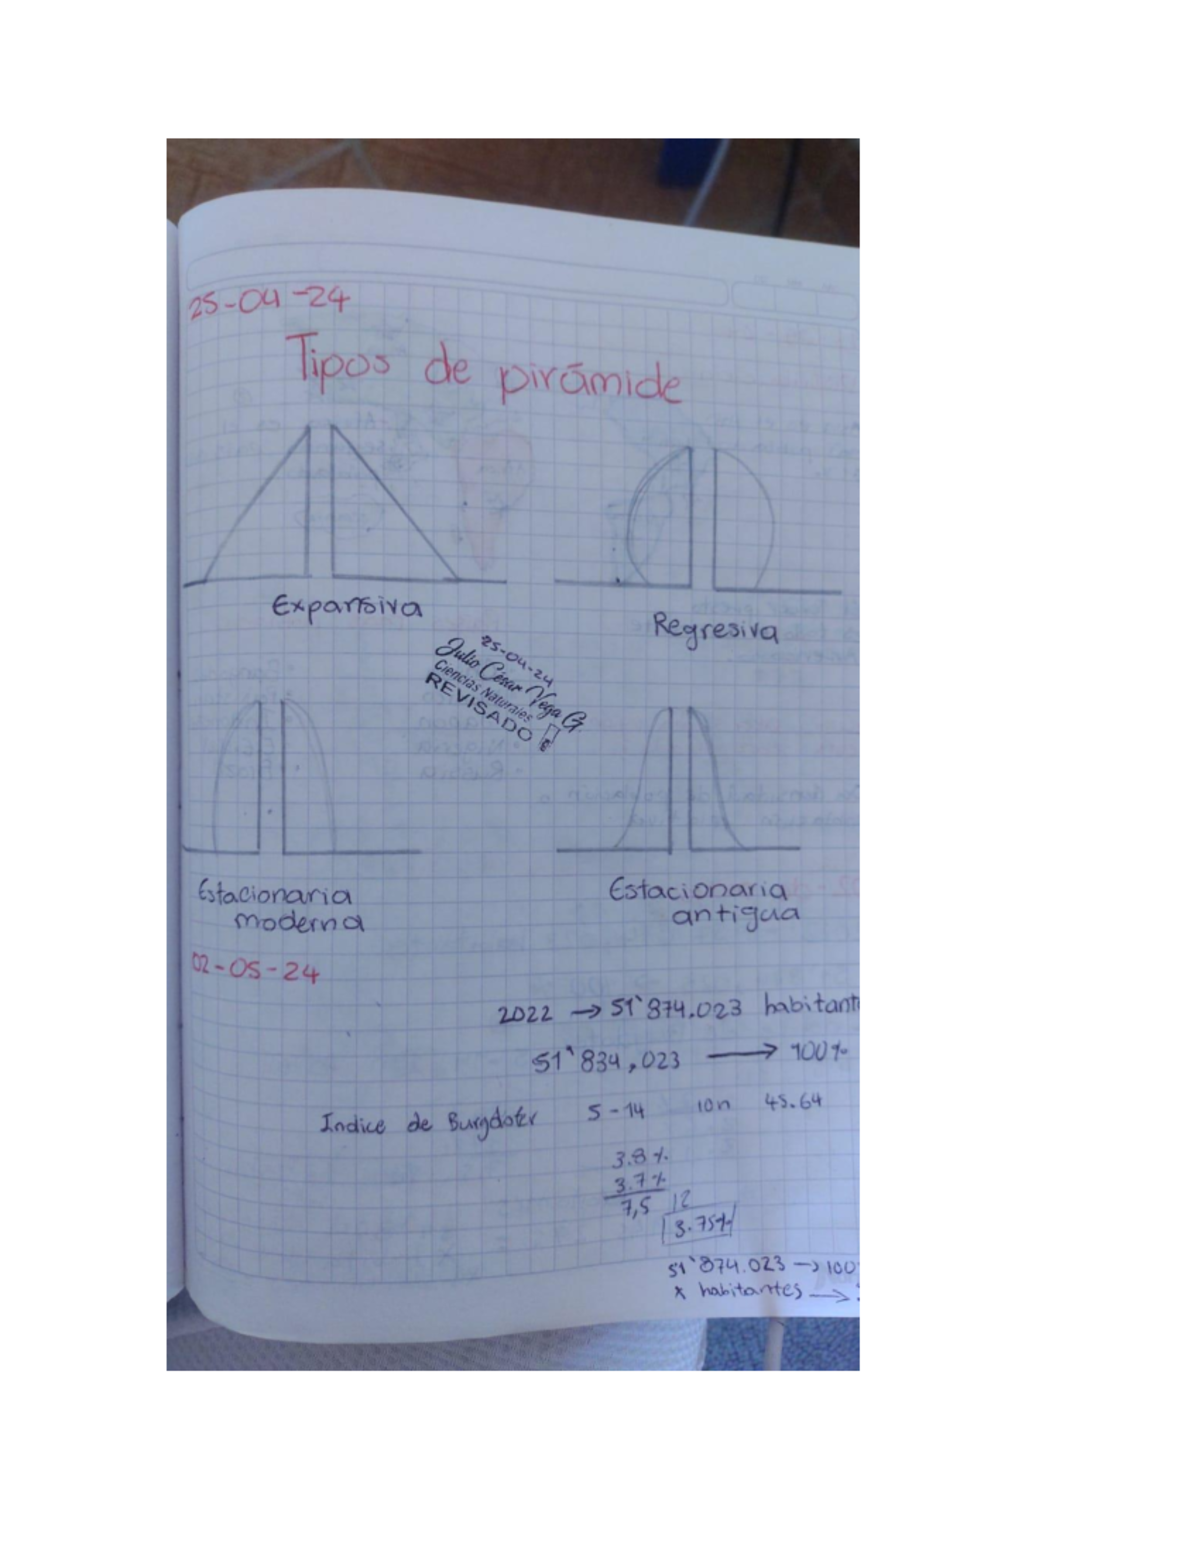 25-04-24
Tipos de pirámide
Expansiva
Regresiva
25-04-24
Julio César Vega G
Ciencias Naturales
REVISADO
Estacionaria
moderna
Estacionaria
antigua
02-05-24
2022 → 51'874.023 habitant
51'834,023 → 100%
Indice de Burgdofer 5-14 45.64
3.8%
3.7%
7,5 12
3.75%
51'874.023 → 100
x habitantes →